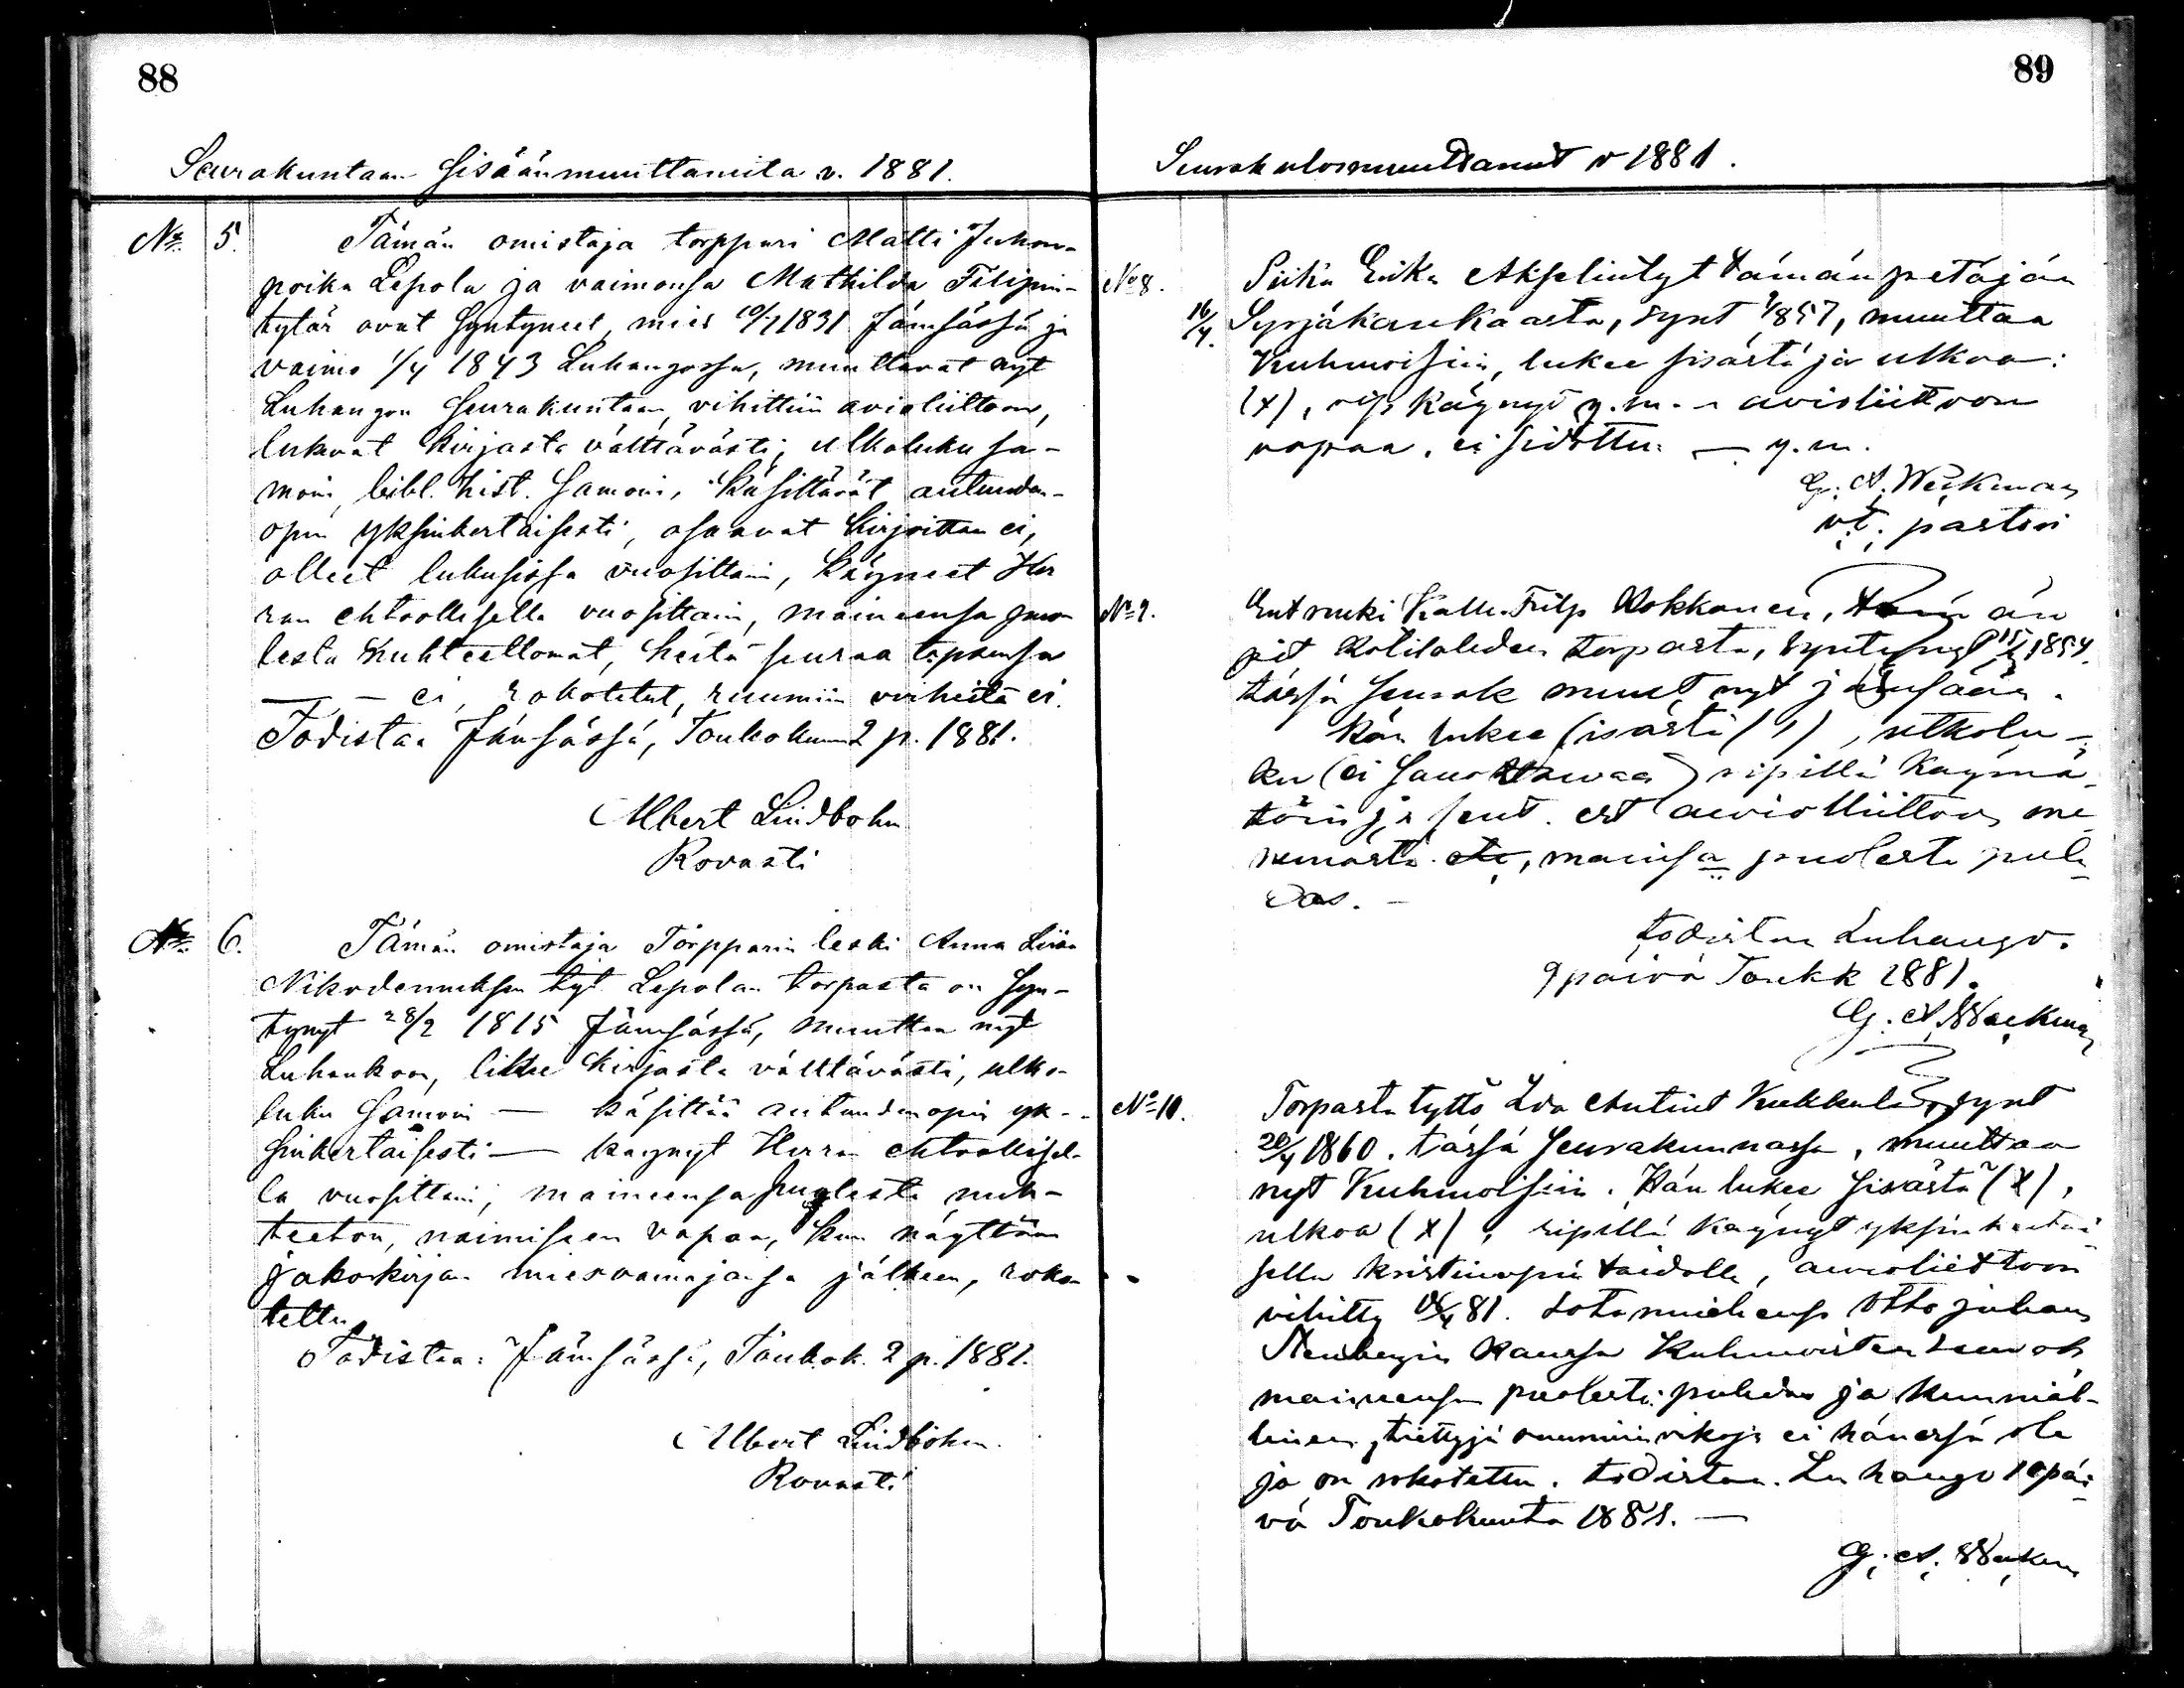 88
Seurakuntaan sisäänmuuttaneita v. 1881.
No 5. Tämän omistaja torppari Matti Juhon-
poika Lepola ja vaimonsa Mathilda Filipin-
tytär ovat syntyneet, mies 10/7 1831 Jämsässä ja
vaimo 1/4 1843 Luhangossa, muuttavat nyt
Luhangon seurakuntaan, vihittiin avioliittoon,
lukevat kirjasta välttävästi, ulkoluku sa-
moin, bibl. hist. samoin, käsittävät autuuden-
opin yksinkertaisesti, osaavat kirjoittaa ei,
olleet lukusissa vuosittain, käyneet Her
ran ehtoollisella vuosittain, maineensa puo
lesta nuhteettomat, heitä seuraa lapsensa
— - ei, rokotetut, ruumiin virheitä ei.
Todistaa Jämsässä, Toukokuun 2 p. 1881.
Albert Lindbohm
Rovasti
No 6. Tämän omistaja Torpparin leski Anna Liisa
Nikodemuksen tyt. Lepolan torpasta on syn-
tynyt 28/2 1815 Jämsässä, muuttaa nyt
Luhankoon, lukee kirjasta välttävästi, ulko-
luku samoin — käsittää autuudenopin yk-
sinkertaisesti — käynyt Herran ehtoollisel-
la vuosittain, maineensa puolesta nuh-
teeton, naimiseen vapaa, kun näyttää
jakokirjan miesvainajansa jälkeen, roko
tettu
Todistaa: Jämsässä, Toukok. 2 p. 1881.
Albert Lindbohm.
Rovasti
89
Seurak ulosmuuttanut v 1881.
No 8. Piika Erika Akselintyt tämän pitäjän
16/4. Syrjäkaukaasta, synt 1857, muuttaa
Kuhmoisiin, lukee sisästä ja ulkoa:
(x), rip. käynyt y.m. - avioliittoon
vapaa, ei sidottu: — y.m.
G. A. Weckman
vt. pastori
No 9. Kalle Filip Kokkonen, tämän
pit Kotilahden torpasta, syntynyt 1854.
tässä seurak muut nyt Jämsään.
Hän lukee sisästä ( ), ulkolu-
ku (ei sanottavaa) ripillä käymä-
töin ja avioliittoon me
nemästä , mainesa puolesta puh
das. -
todistaa Luhango.
9 päivä Toukk 1881.
G. A. Weckman
No 10. Torpasta tyttö Eva Antint Kukkula, synt
20/4 1860. tässä seurakunnassa, muuttaa
nyt Kuhmoisiin. Hän lukee sisästä (x),
ulkoa (x), ripillä käynyt yksinkertai
sella kristinopin taidolla, avioliittoon
vihitty 81. sotamiehens Otto Juhan
Stenbergin kanssa Kuhmoisten seurak
maineensa puolesta puhdas ja kunnial-
linen, tiettyjä ruumiin vikoja ei hänessä ole
ja on rokotettu. todistaa. Luhango 10 päi
vä Toukokuuta 1881. —
G. A. Weckman